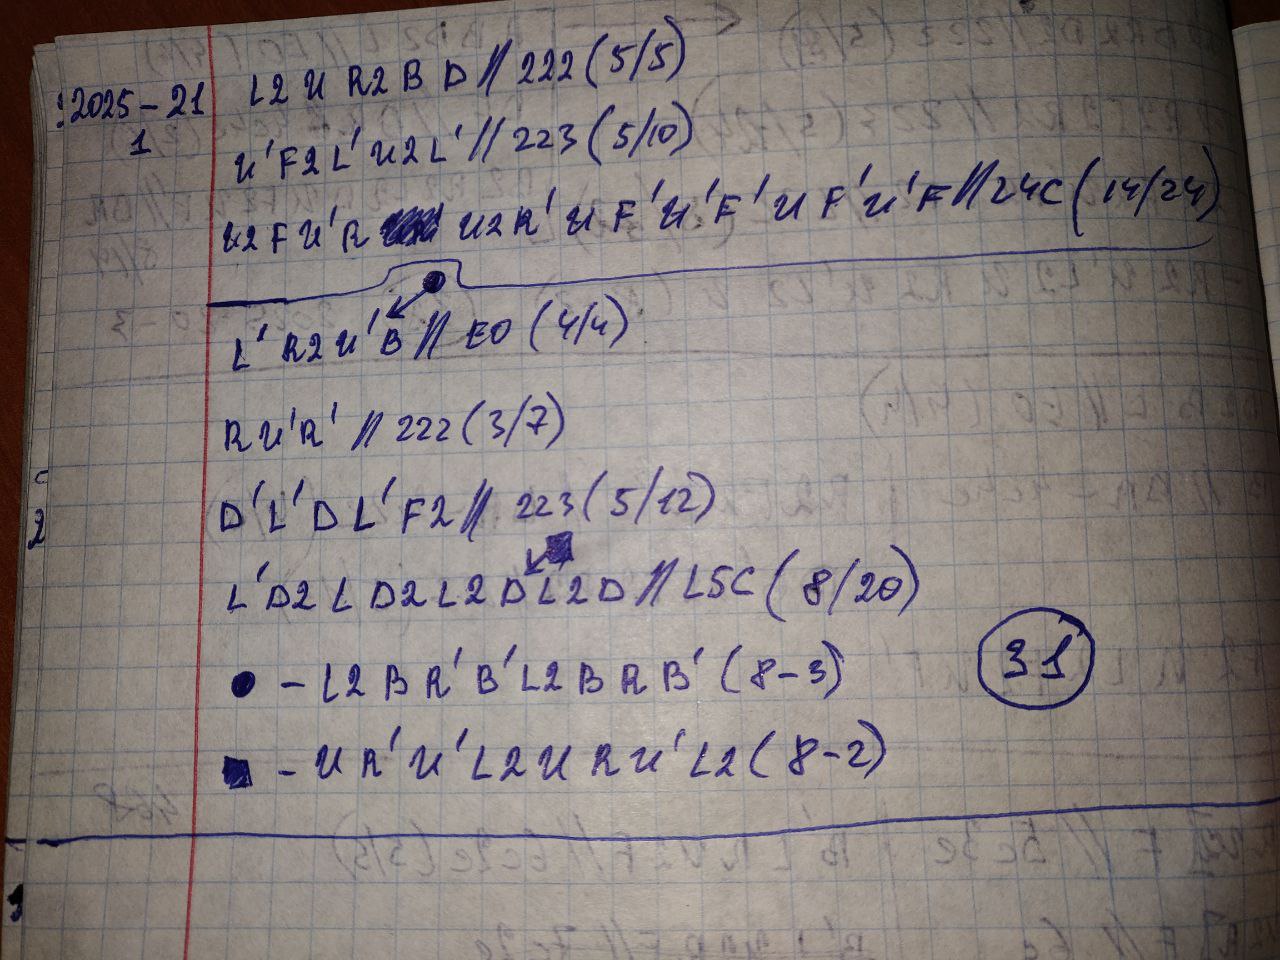 2025-21
1
L2 U R2 B D // 222 (5/5)
U' F2 L' U2 L' // 223 (5/10)
U2 F U' R U2 R' U F' U' F' U F' U' F // 24C (14/24)
L' R2 U' B // EO (4/4)
R U' R' // 222 (3/7)
2
D' L' D L' F2 // 223 (5/12)
L' D2 L D2 L2 D L2 D // L5C (8/20)
● - L2 B R' B' L2 B R B' (8-3)
31
■ - U R' U' L2 U R U' L2 (8-2)